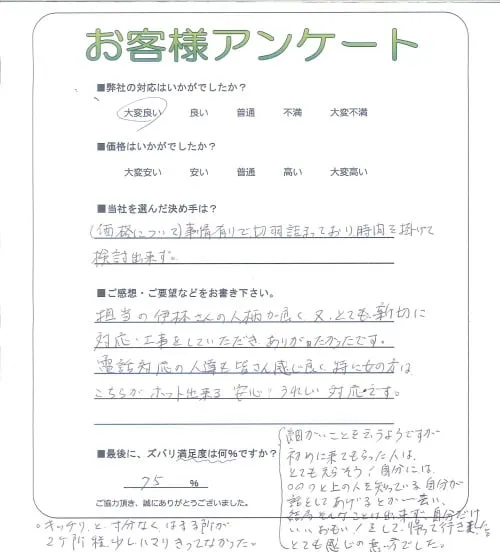 お客様アンケート
■弊社の対応はいかがでしたか？
大変良い 良い 普通 不満 大変不満
■価格はいかがでしたか？
大変安い 安い 普通 高い 大変高い
■当社を選んだ決め手は？
(価格について)事情有りで切羽詰まっており時間を掛けて
検討出来ず。
■ご感想・ご要望などをお書き下さい。
担当の伊林さんの人柄が良く又、とても親切に
対応・工事をしていただきありがたかったです。
電話対応の人達も皆さん感じ良く、特に女の方は
こちらがホット出来る安心・うれしい対応です。
■最後に、ズバリ満足度は何％ですか？
75 ％
ご協力頂き、誠にありがとうございました。
細かいことを言うようですが
初めに来てもらった人は、
とてもえらそう！自分には、
○○の上の人を知っている自分が
話をしてあげるとか言い、
結局そんなことは出来ず、自分だけ
いいおもいをして、帰って行きました。
とても感じの悪い方でした。
。キッチリと、すみなくはまる所が
2ケ所程少しハマりきってなかった。